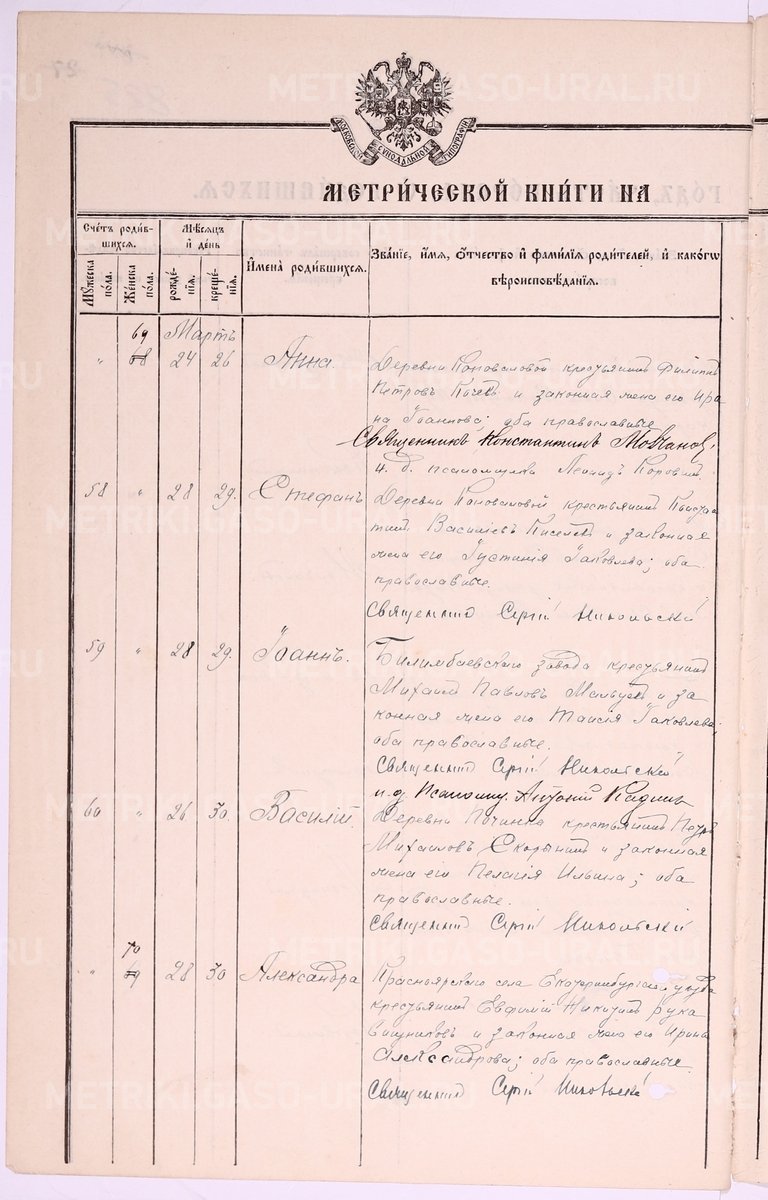 МЕТРИ́ЧЕСКОЙ КНИ́ГИ НА
Сче́тъ роди́в-
шихся.
Му́жеска по́ла.
Же́нска по́ла.
Мѣ́сяцъ и́ де́нь
рожде́-
нїя.
креще́-
нїя.
И҆мена̀ роди́вшихся.
Зва́нїе, и҆́мя, ѻ҆́тчество и҆ фами́лїя роди́телей, и҆ како́гѡ
вѣроисповѣ́данїя.
69 Мартъ
" 68 24 26 Анна.
Деревни Коноваловой крестьянинъ Филиппъ
Петровъ и законная жена его Ири
на Іоаннова; оба православные
Священникъ Константинъ
и. д. псаломщика Леонидъ
58 " 28 29. Стефанъ
Деревни Коноваловой крестьянинъ
Василіевъ Киселевъ и законная
жена его Іустинія Іаковлева; оба
православные.
Священникъ Сергій Никольскій
59 " 28 29. Іоаннъ.
Билимбаевскаго завода крестьянинъ
Михаилъ Павловъ Мальцевъ и за
конная жена его Таисія Іаковлева;
оба православные.
Священникъ Сергій Никольскій
и. д. Псаломщ. Антоній
60 " 26 30. Василій.
Деревни Починка крестьянинъ Петръ
Михаиловъ Скорынинъ и законная
жена его Пелагія Ильина; оба
православные.
Священникъ Сергій Никольскій
70
" 69 28 30 Александра
Красноярскаго села Екатеринбургскаго уѣзда
крестьянинъ Евфимій Никитинъ Рука
вишниковъ и законная жена его Ирина
Александрова; оба православные
Священникъ Сергій Никольскій
METRIKI.GASO-URAL.RU